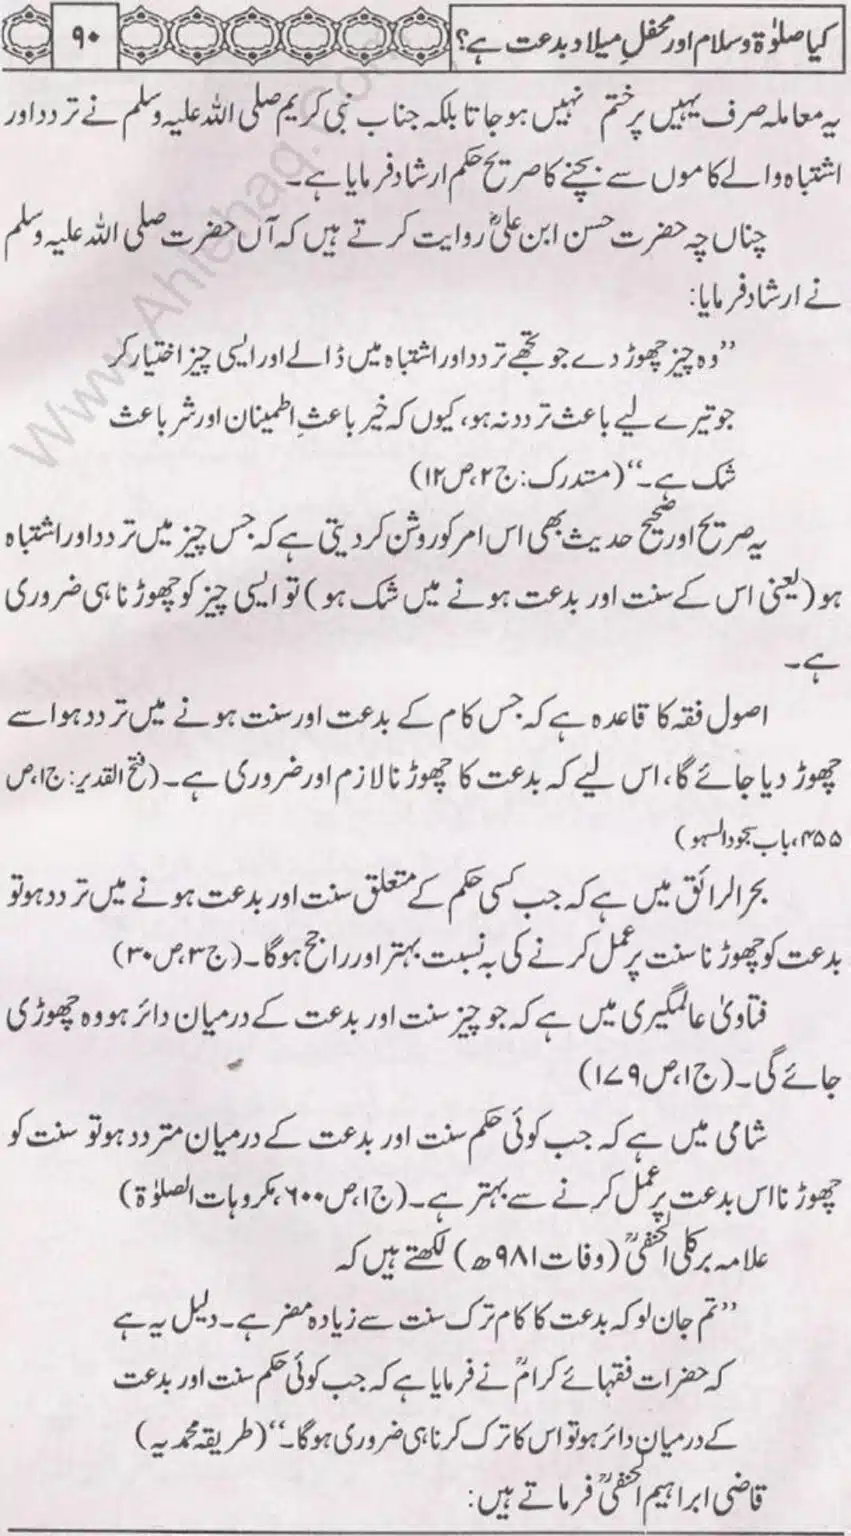 کیا صلوٰۃ وسلام اور محفلِ میلاد بدعت ہے؟
۹۰
یہ معاملہ صرف یہیں پر ختم نہیں ہوجاتا بلکہ جناب نبی کریم صلی اللہ علیہ وسلم نے تردد اور
اشتباہ والے کاموں سے بچنے کا صریح حکم ارشاد فرمایا ہے۔
چناں چہ حضرت حسن ابن علیؓ روایت کرتے ہیں کہ آں حضرت صلی اللہ علیہ وسلم
نے ارشاد فرمایا:
”وہ چیز چھوڑ دے جو تجھے تردد اور اشتباہ میں ڈالے اور ایسی چیز اختیار کر
جو تیرے لیے باعث تردد نہ ہو، کیوں کہ خیر باعثِ اطمینان اور شر باعث
شک ہے۔“ (مستدرک: ج۲، ص۱۲)
یہ صریح اور صحیح حدیث بھی اس امر کو روشن کر دیتی ہے کہ جس چیز میں تردد اور اشتباہ
ہو (یعنی اس کے سنت اور بدعت ہونے میں شک ہو) تو ایسی چیز کو چھوڑنا ہی ضروری
ہے۔
اصول فقہ کا قاعدہ ہے کہ جس کام کے بدعت اور سنت ہونے میں تردد ہو اسے
چھوڑ دیا جائے گا، اس لیے کہ بدعت کا چھوڑنا لازم اور ضروری ہے۔ (فتح القدیر: ج۱، ص
۴۵۵، باب سجود السہو)
بحر الرائق میں ہے کہ جب کسی حکم کے متعلق سنت اور بدعت ہونے میں تردد ہو تو
بدعت کو چھوڑنا سنت پر عمل کرنے کی بہ نسبت بہتر اور راجح ہوگا۔ (ج۳، ص۳۰)
فتاویٰ عالمگیری میں ہے کہ جو چیز سنت اور بدعت کے درمیان دائر ہو وہ چھوڑی
جائے گی۔ (ج۱، ص۱۷۹)
شامی میں ہے کہ جب کوئی حکم سنت اور بدعت کے درمیان متردد ہو تو سنت کو
چھوڑنا اس بدعت پر عمل کرنے سے بہتر ہے۔ (ج۱، ص۶۰۰، مکروہات الصلوٰۃ)
علامہ برکلی الحنفیؒ (وفات ۹۸۱ھ) لکھتے ہیں کہ
”تم جان لو کہ بدعت کا کام ترک سنت سے زیادہ مضر ہے۔ دلیل یہ ہے
کہ حضرات فقہائے کرامؒ نے فرمایا ہے کہ جب کوئی حکم سنت اور بدعت
کے درمیان دائر ہو تو اس کا ترک کرنا ہی ضروری ہوگا۔“ (طریقہ محمدیہ)
قاضی ابراہیم الحنفیؒ فرماتے ہیں:
Www.Ahlehaq.Com